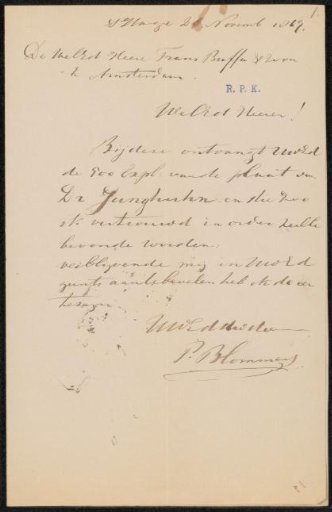 1.
S'Hage 2 Novemb 1869.
De WelEd Heere Frans Buffa & Zoon
te Amsterdam
R. P. K.
WelEd Heeren!
Bij deze ontvangt UWEd
de 800 Expl. van de plaat van
Dr Junghuhn en die zoo
ik vertrouwd in orde zult
bevonden worden.
verblijvende mij in UWEd
gunst aanbevelen heb ik de eer
te zijn
UWEd
P. Blommers